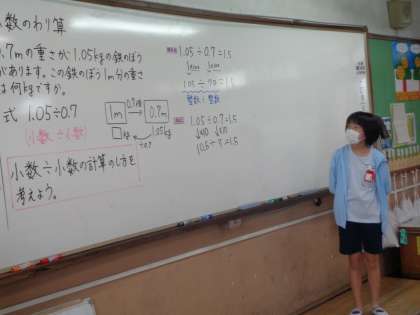 小数のわり算
0.7mの重さが1.05kgの鉄のぼう
があります。この鉄のぼう1m分の重さ
は何kgですか。
式 1.05÷0.7
(小数÷小数)
1m
0.7m
kg
1.05kg
÷0.7
小数÷小数の計算のし方を
考えよう。
1.05÷0.7=1.5
整数÷整数
1.05÷0.7=1.5
10.5÷7=1.5